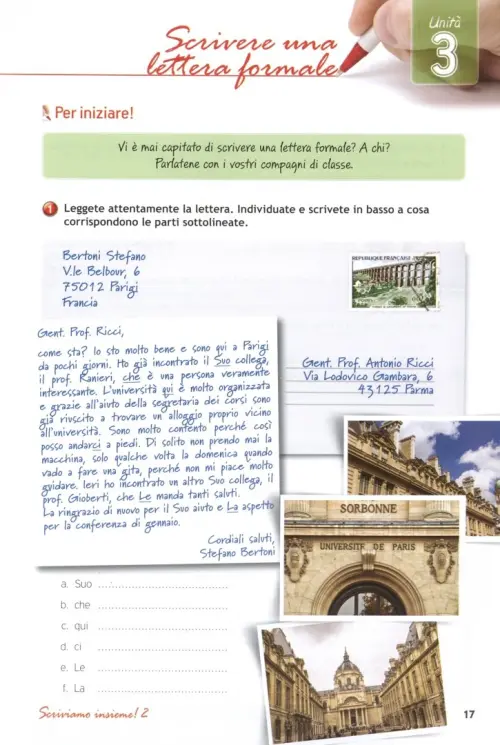 Scrivere una
lettera formale
Unità
3
Per iniziare!
Vi è mai capitato di scrivere una lettera formale? A chi?
Parlatene con i vostri compagni di classe.
1 Leggete attentamente la lettera. Individuate e scrivete in basso a cosa
corrispondono le parti sottolineate.
Bertoni Stefano
V.le Belbour, 6
75012 Parigi
Francia
REPUBLIQUE FRANÇAISE
Gent. Prof. Antonio Ricci
Via Lodovico Gambara, 6
43125 Parma
Gent. Prof. Ricci,
come sta? Io sto molto bene e sono qui a Parigi
da pochi giorni. Ho già incontrato il Suo collega,
il prof. Ranieri, che è una persona veramente
interessante. L'università qui è molto organizzata
e grazie all'aiuto della segretaria dei corsi sono
già riuscito a trovare un alloggio proprio vicino
all'università. Sono molto contento perché così
posso andarci a piedi. Di solito non prendo mai la
macchina, solo qualche volta la domenica quando
vado a fare una gita, perché non mi piace molto
guidare. Ieri ho incontrato un altro Suo collega, il
prof. Gioberti, che Le manda tanti saluti.
La ringrazio di nuovo per il Suo aiuto e La aspetto
per la conferenza di gennaio.
Cordiali saluti,
Stefano Bertoni
SORBONNE
UNIVERSITE DE PARIS
a. Suo
b. che
c. qui
d. ci
e. Le
f. La
Scriviamo insieme! 2
17